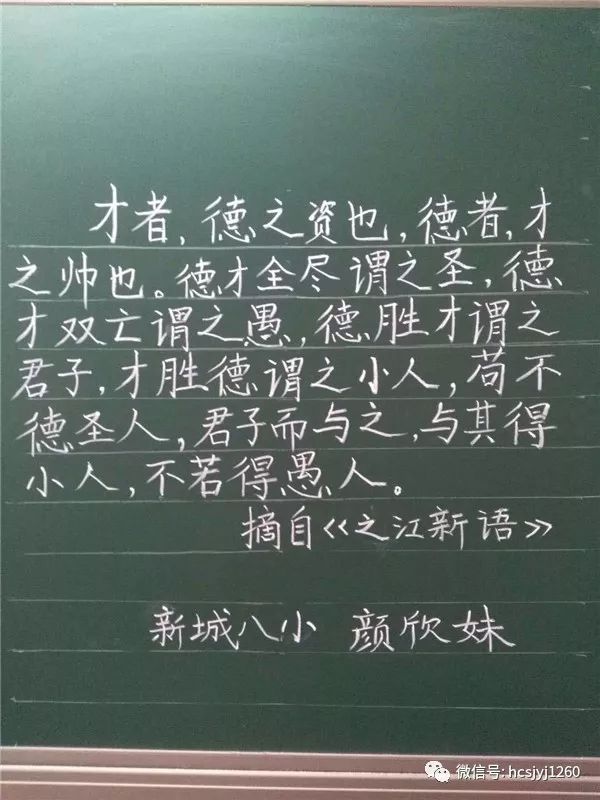 才者，德之资也，德者，才
之帅也。德才全尽谓之圣，德
才双亡谓之愚，德胜才谓之
君子，才胜德谓之小人，苟不
德圣人，君子而与之，与其得
小人，不若得愚人。
摘自《之江新语》
新城八小 颜欣妹
微信号: hcsjyj1260